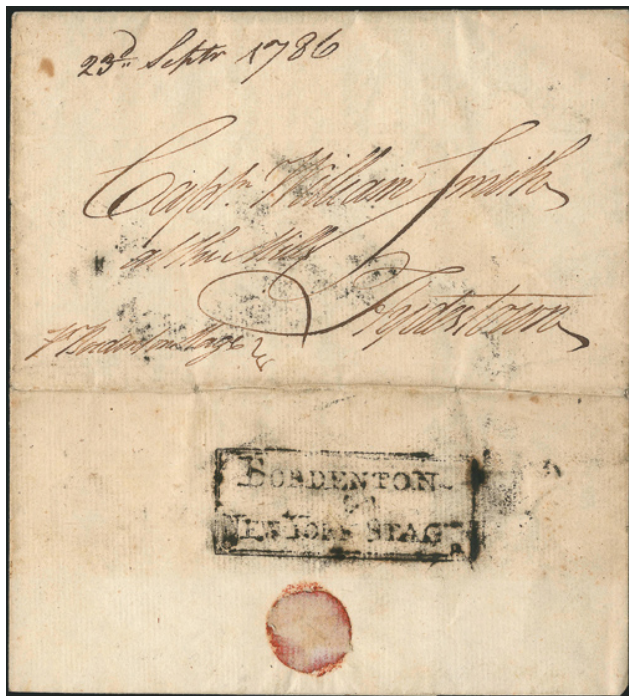 23d Septr 1786
Captn William Smith
at the Mill
Hydestown
pr Bordenton Stage
BORDENTON
NEW YORK STAGE